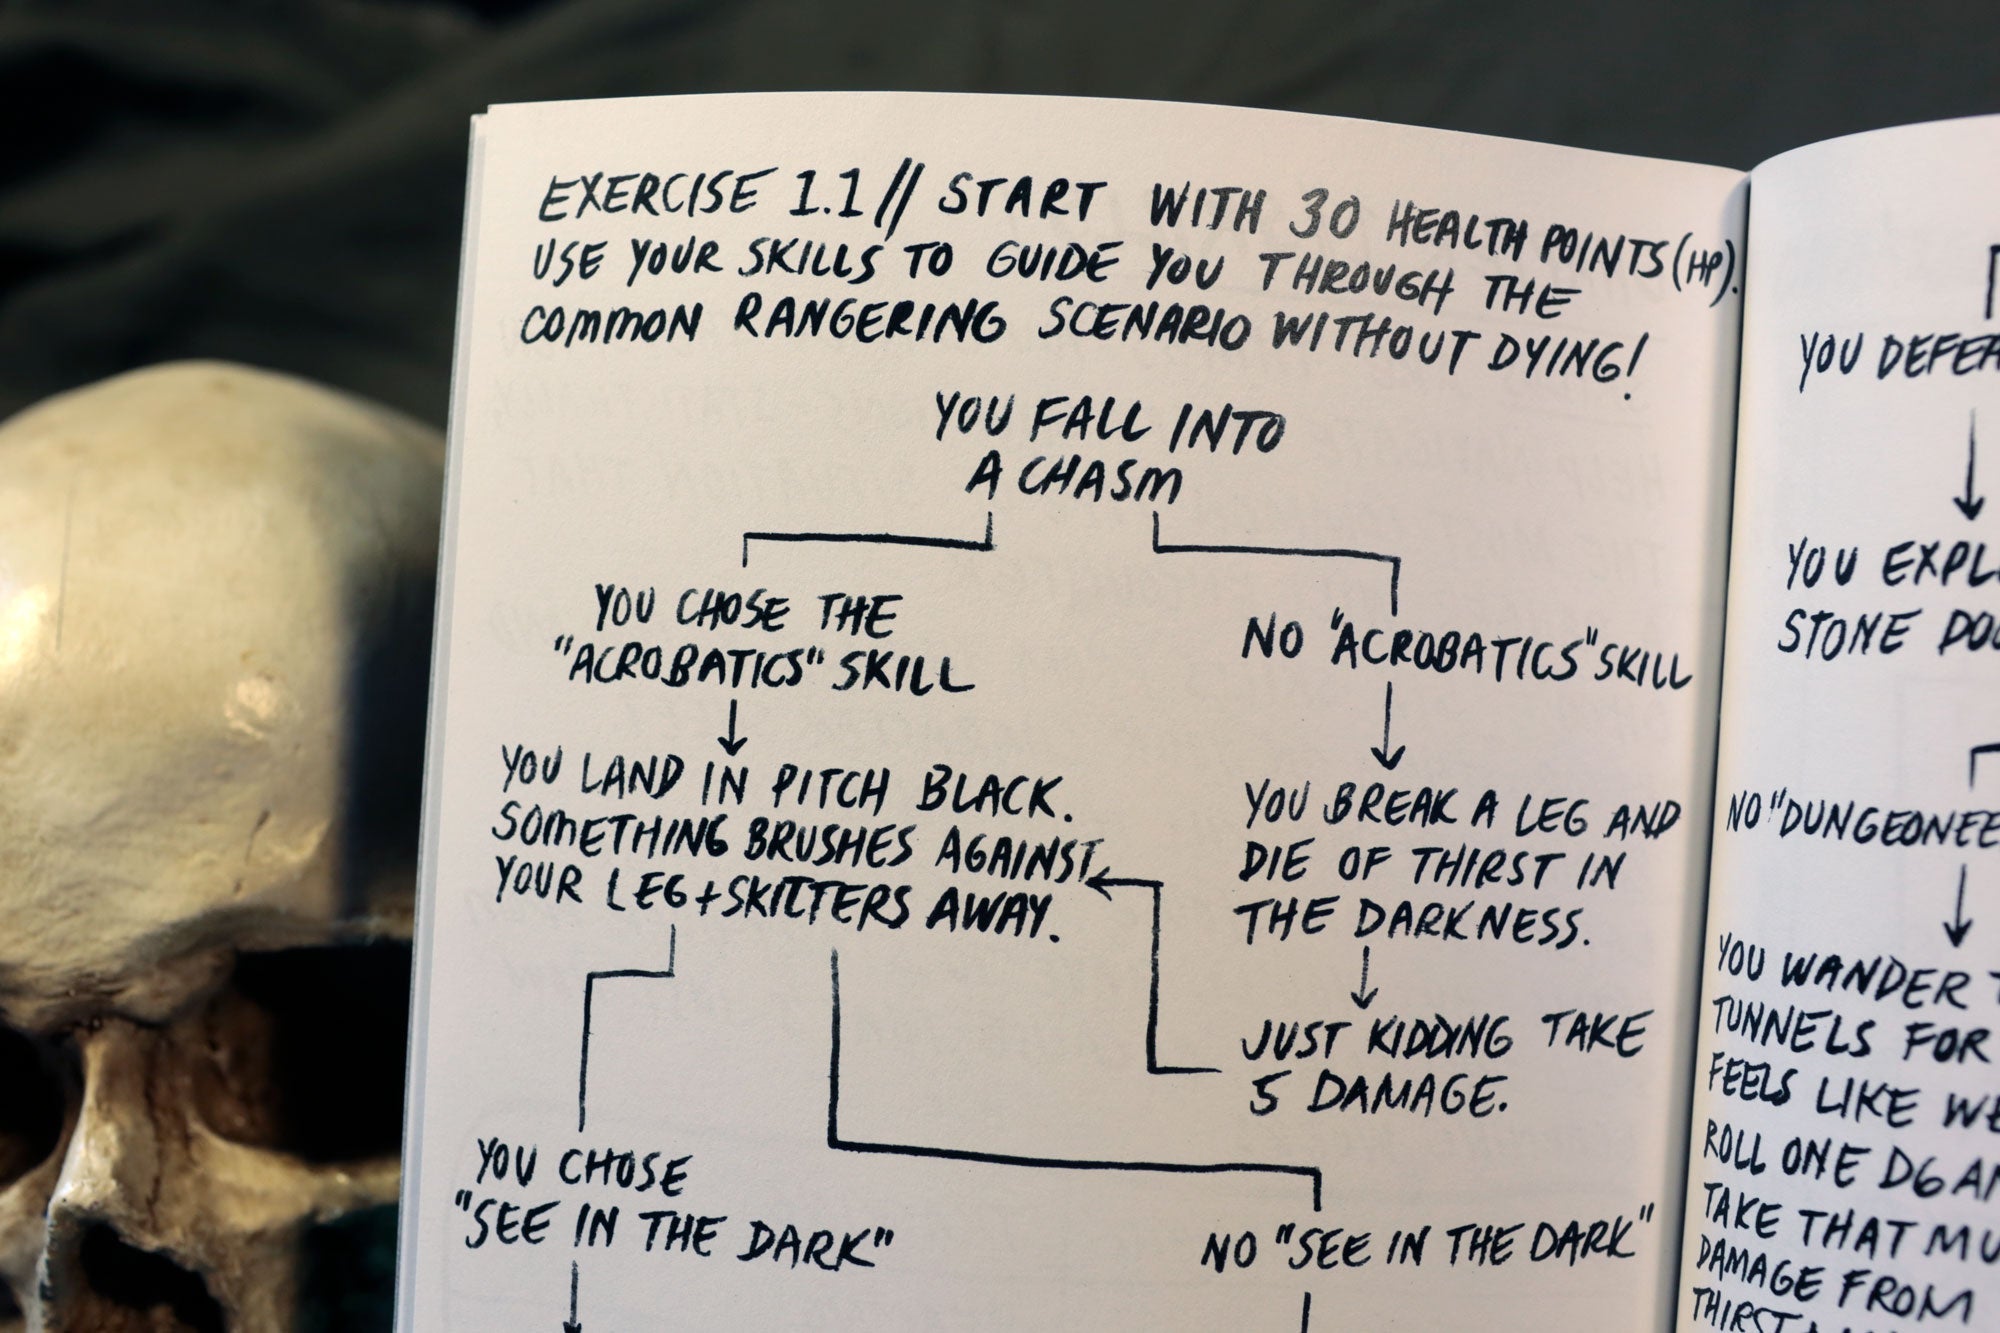 EXERCISE 1.1 // START WITH 30 HEALTH POINTS (HP).
USE YOUR SKILLS TO GUIDE YOU THROUGH THE
COMMON RANGERING SCENARIO WITHOUT DYING!
YOU FALL INTO
A CHASM
YOU CHOSE THE
"ACROBATICS" SKILL
NO "ACROBATICS" SKILL
YOU LAND IN PITCH BLACK.
SOMETHING BRUSHES AGAINST
YOUR LEG + SKITTERS AWAY.
YOU BREAK A LEG AND
DIE OF THIRST IN
THE DARKNESS.
JUST KIDDING TAKE
5 DAMAGE.
YOU CHOSE
"SEE IN THE DARK"
NO "SEE IN THE DARK"
YOU
YOU
STONE
NO
YOU WANDER
TUNNELS FOR
FEELS LIKE
ROLL ONE D6
TAKE THAT
DAMAGE FROM
THIRST